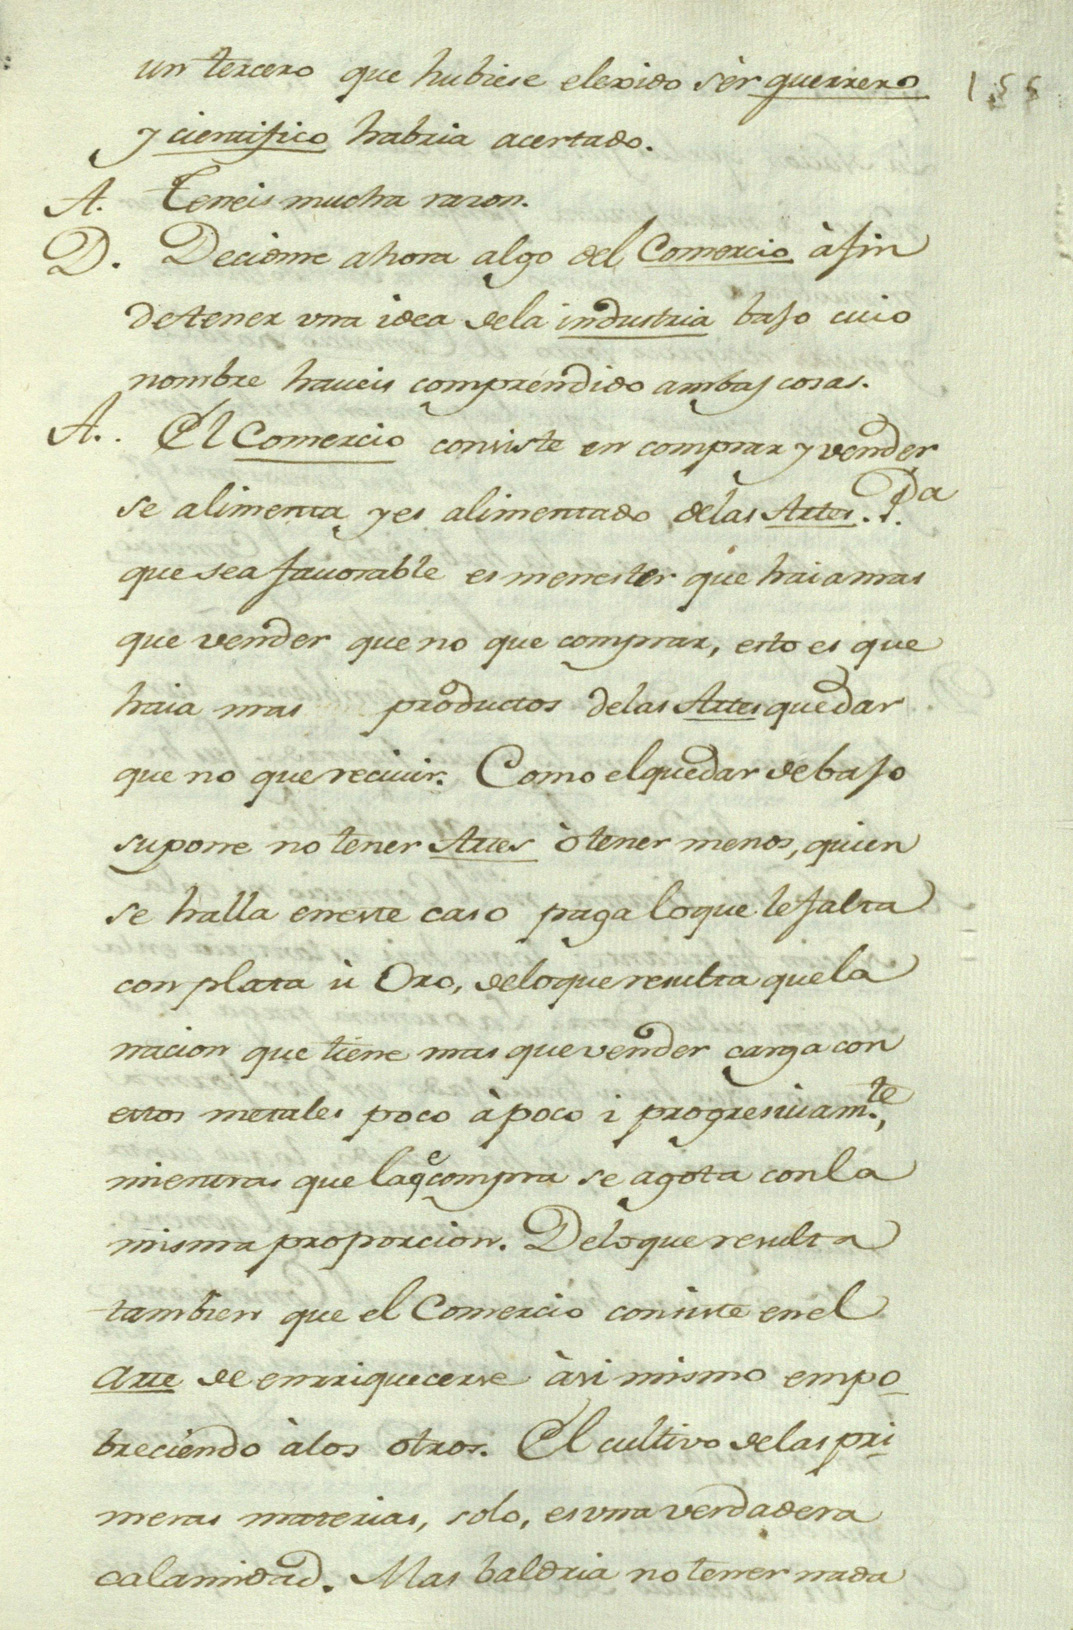 un tercero que hubiese elexido sèr guerrero 155
y cientifico habria acertado.
A. Teneis mucha razon.
D. Decidme ahora algo del Comercio à fin
de tener una idea dela industria bajo cuio
nombre haueis comprendido ambas cosas.
A. El Comercio consiste en comprar y vender
se alimenta y es alimentado delas Artes. Pa
que sea fauorable es menester que haia mas
que vender que no que comprar, esto es que
haia mas productos delas Artes que dar
que no que reciuir. Como el quedar debajo
supone no tener Artes ò tener menos, quien
se halla eneste caso paga loque le falta
con plata ù Oro, deloque resulta que la
nacion que tiene mas que vender carga con
estos metales poco à poco i progresiuamte,
mientras que la qe compra se agota con la
misma proporcion. Deloque resulta
tambien que el Comercio consiste en el
arte de enrriquecerse à si mismo empo
breciendo àlos otros. El cultivo delas pri
meras materias, solo, es una verdadera
calamidad. Mas baldria no tener nada